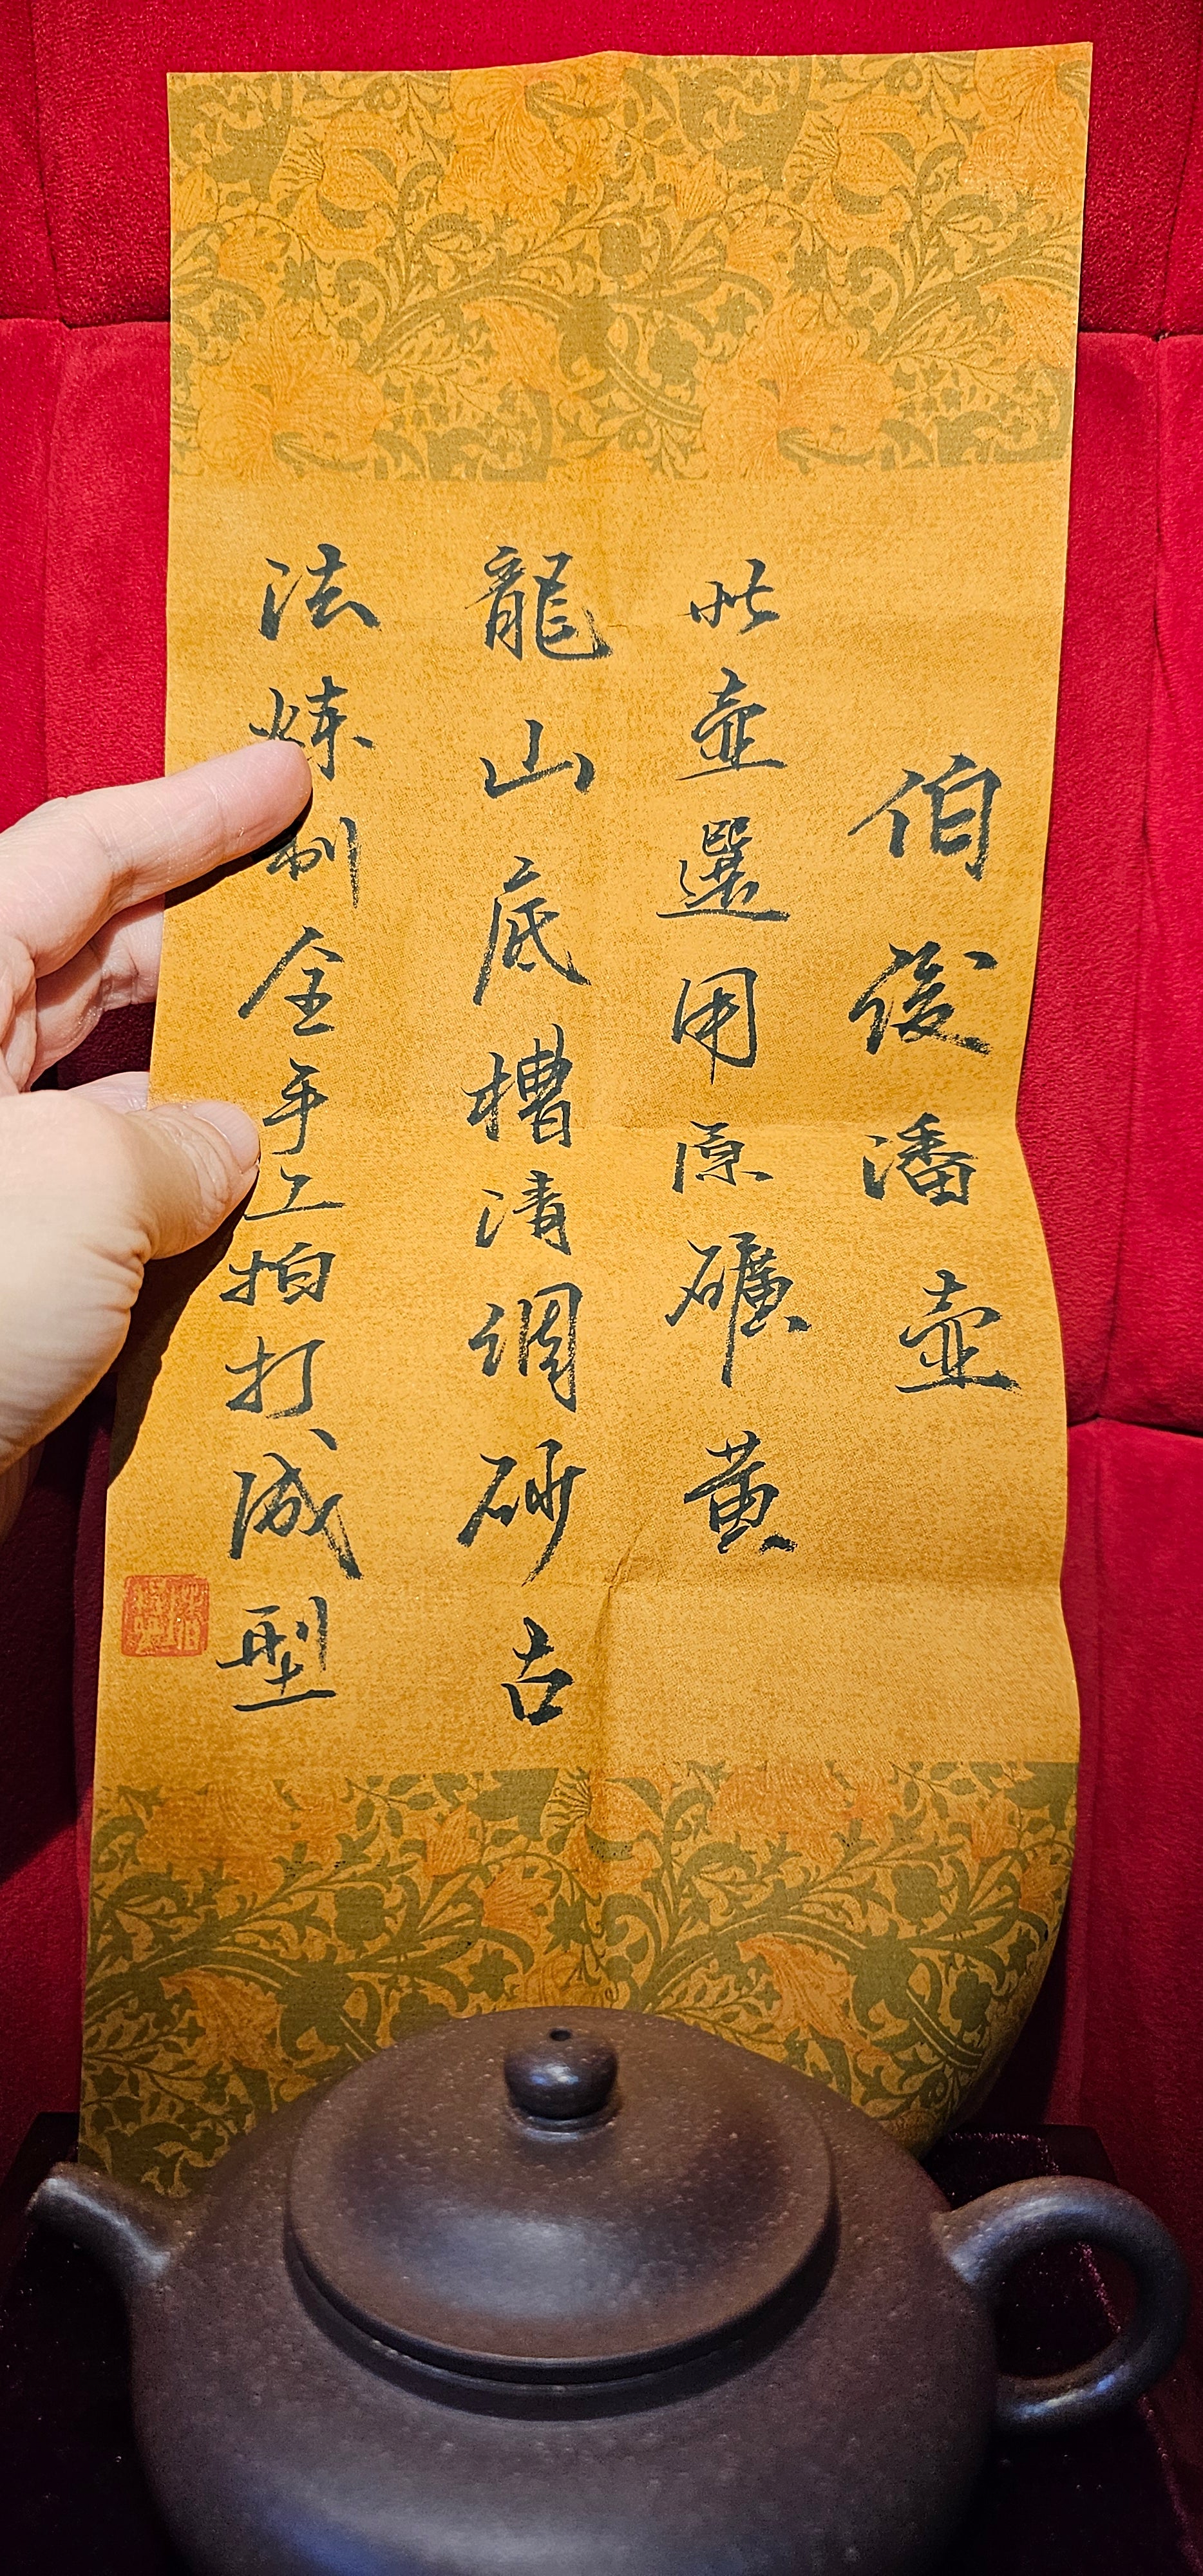 伯俊潘壶
此壶選用原礦黄
龍山底槽清調砂古
法炼制全手工拍打成型